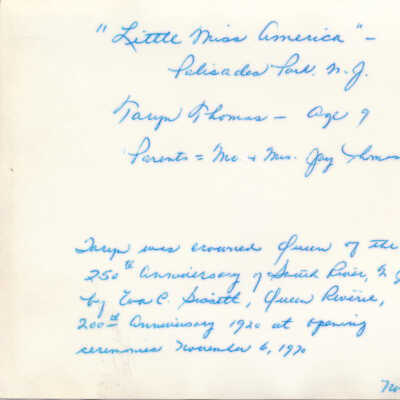 "Little Miss America" -
Palisades Park, N.J.
Taryn Thomas - Age 9
Parents = Mr. + Mrs. Jay Thomas
Taryn was crowned Queen of the
250th Anniversary of South River, N.J.
by Eva C. Sissett, Queen Reverie,
200th Anniversary 1920 at opening
ceremonies November 6, 1970